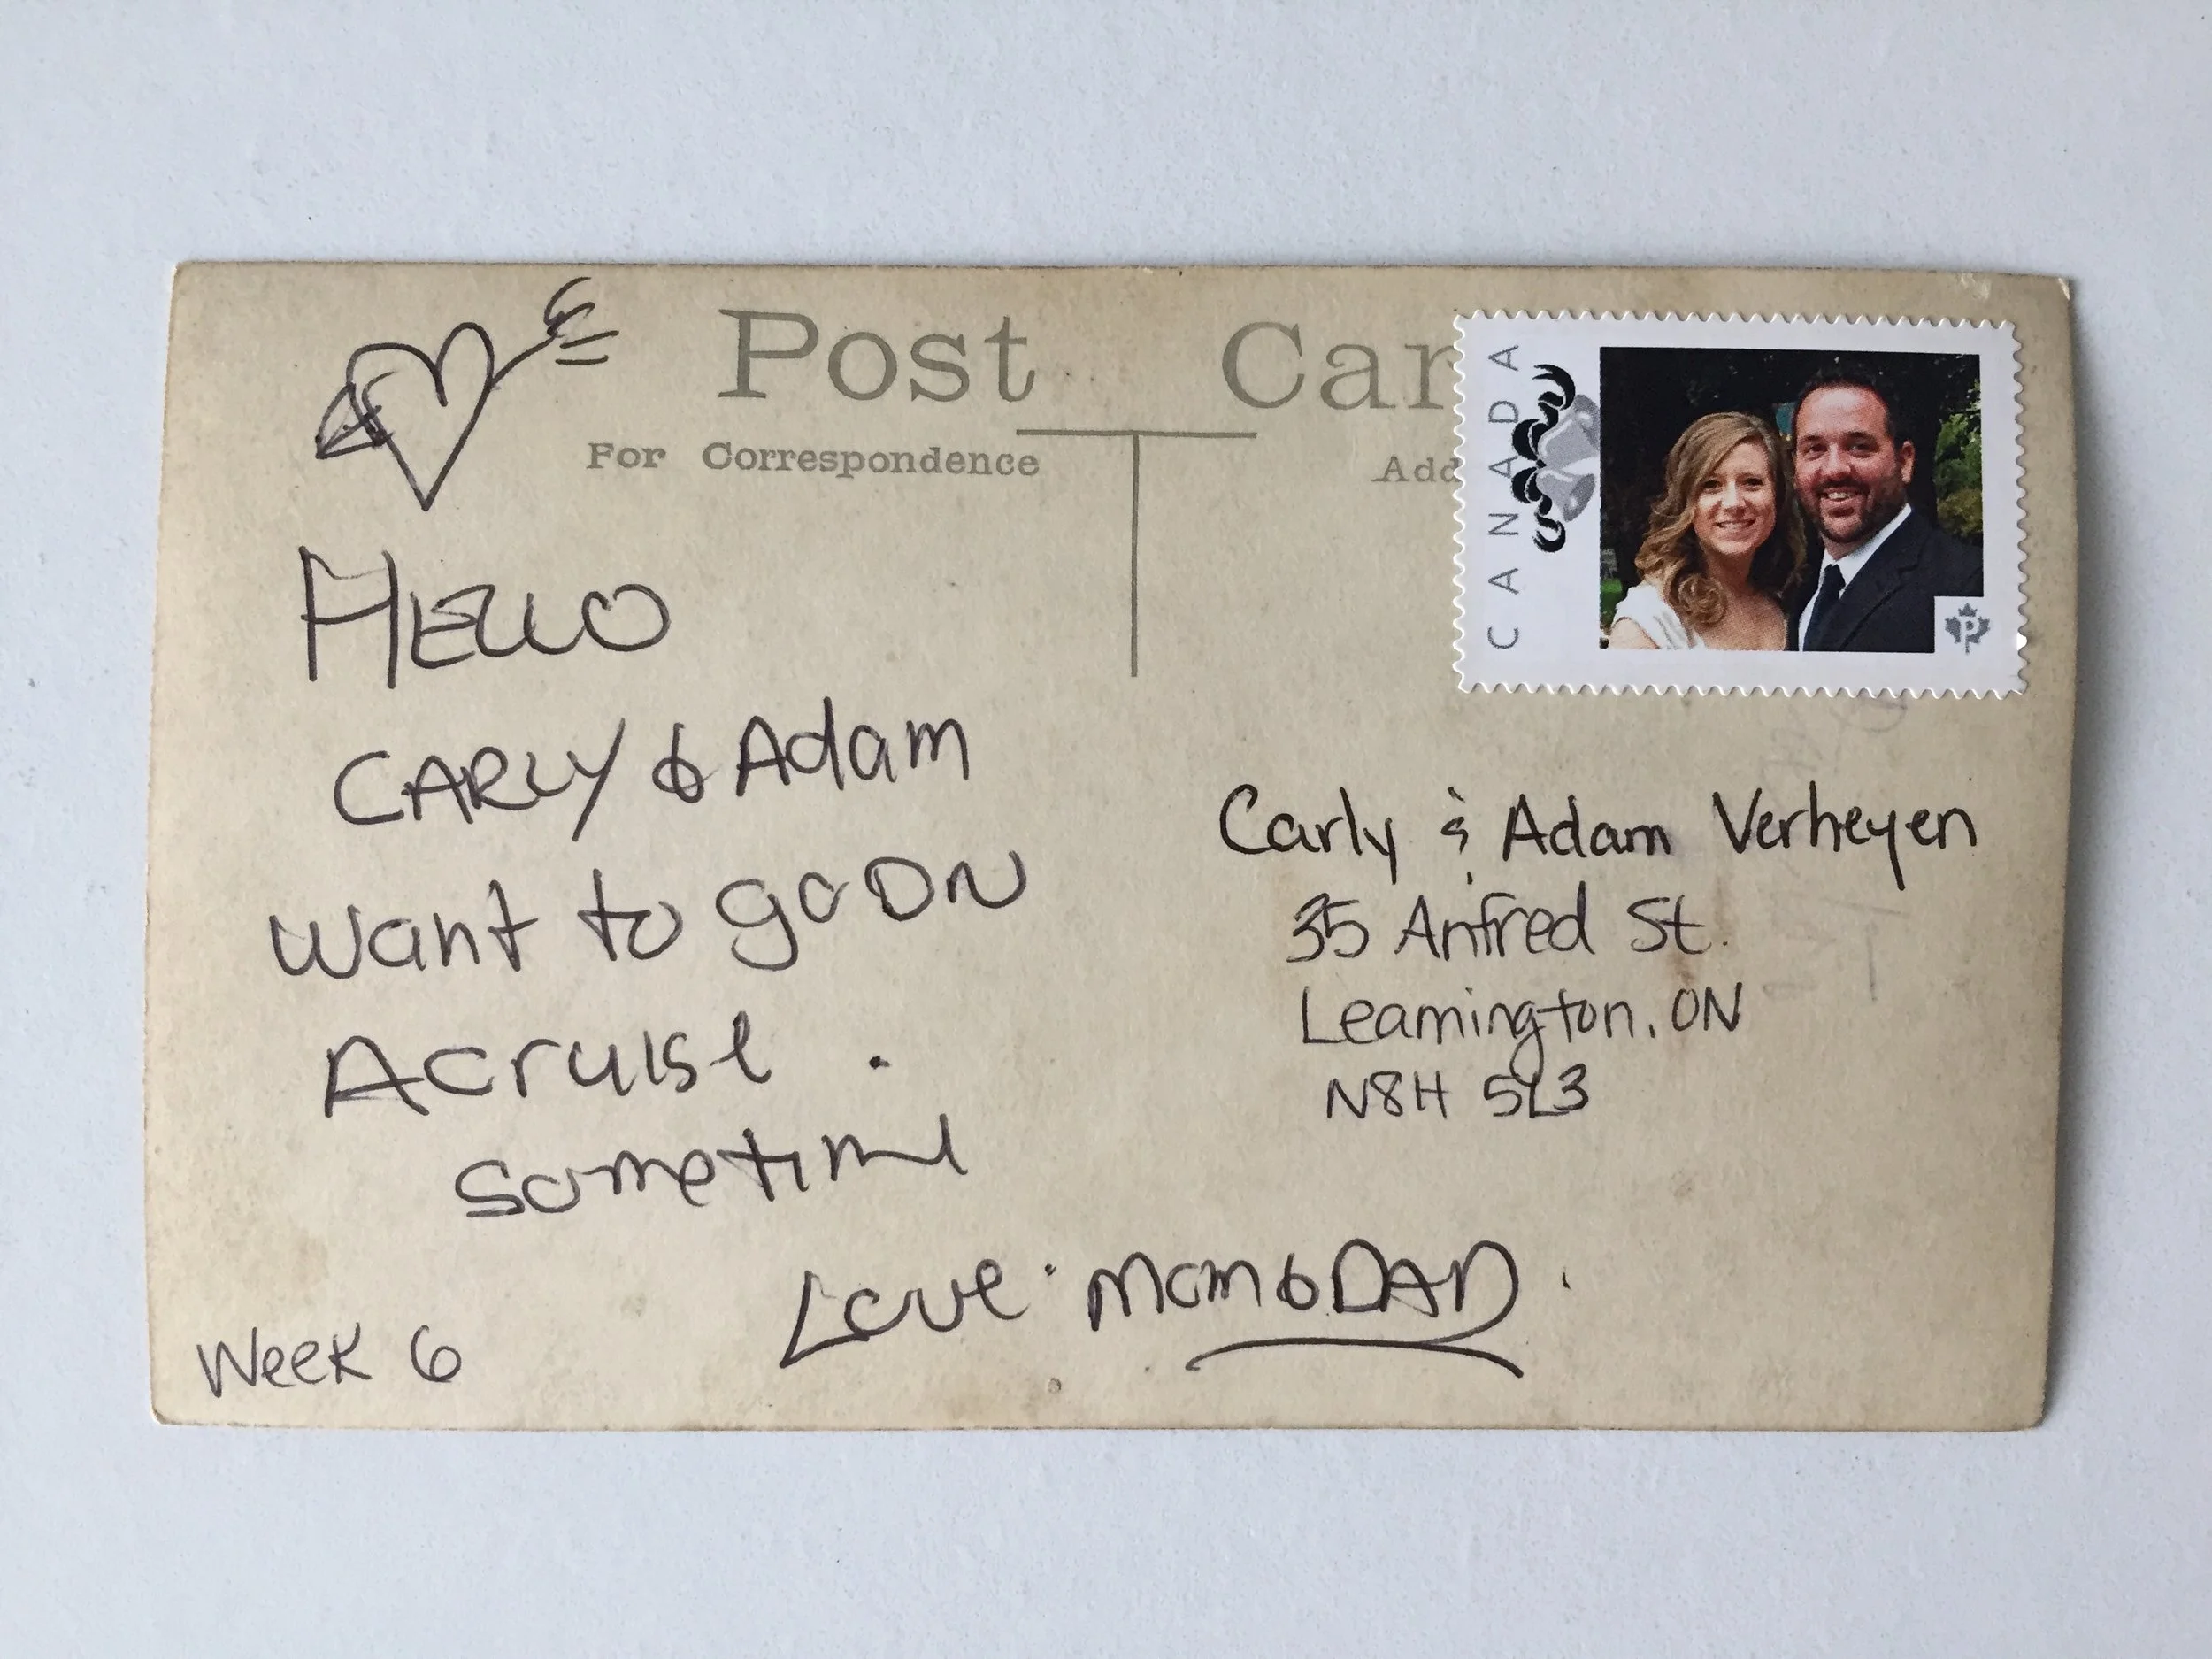 Post Car
For Correspondence
Add
CANADA
P
HELLO
CARLY & Adam
want to go ON
A cruise.
sometime
Love. Mom & DAD.
Week 6
Carly & Adam Verheyen
35 Anfred St.
Leamington, ON
N8H 5L3